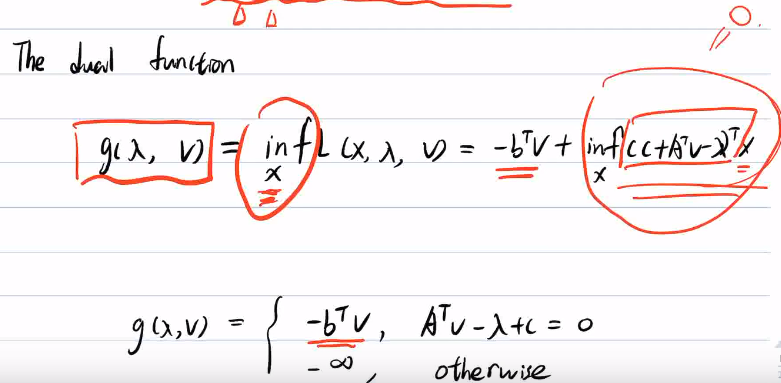 The dual function
g(λ, v) = inf L(x, λ, v) = -bᵀv + inf (c+Aᵀv-λ)ᵀx
x x
g(λ,v) = { -bᵀv, Aᵀv-λ+c = 0
-∞, otherwise